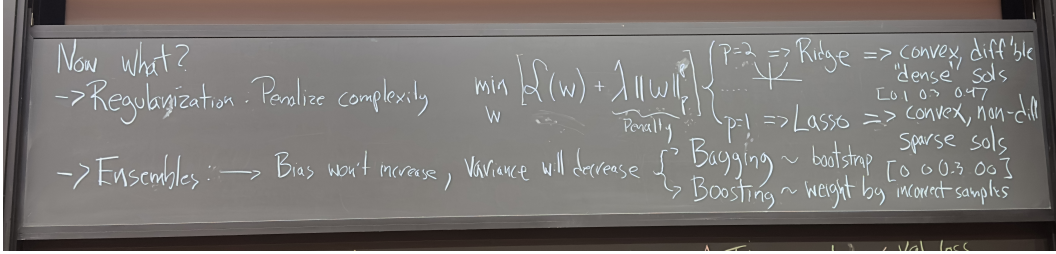 Now what?
-> Regularization. Penalize complexity
min [ℒ(w) + λ||w||ₚᵖ]
w
Penalty
p=2 => Ridge => convex, diff'ble
"dense" sols
.....
p=1 => Lasso => convex, non-diff
sparse sols
-> Ensembles: -> Bias won't increase, Variance will decrease
-> Bagging ~ bootstrap [0 0 0.3 0 0]
-> Boosting ~ weight by incorrect samples
Val loss